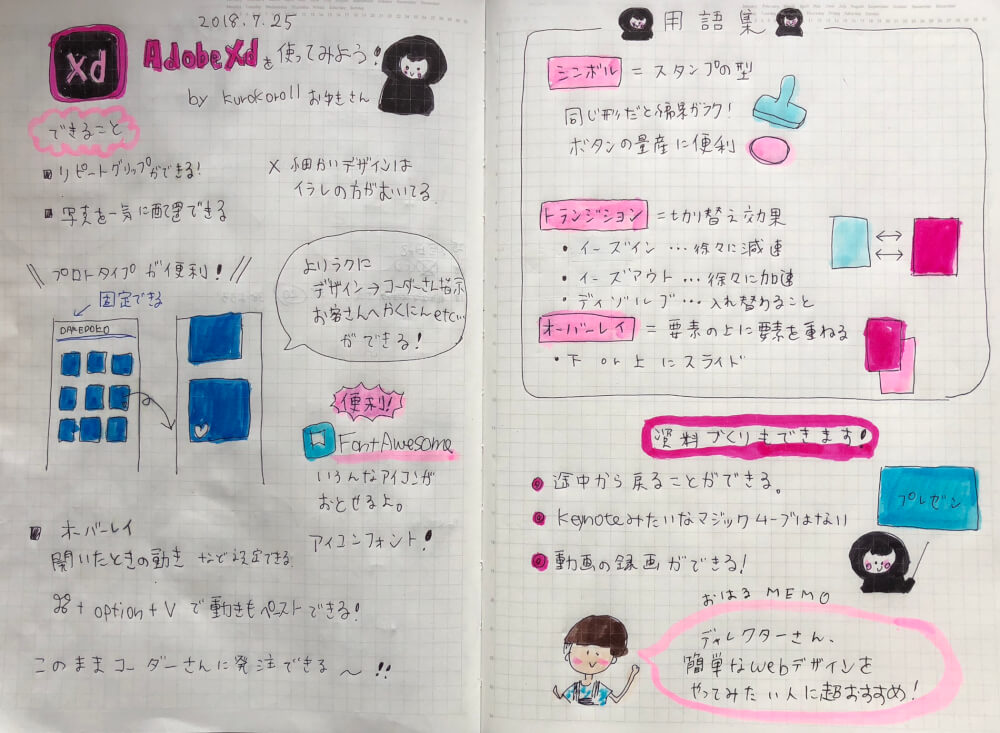 2018.7.25
Xd
Adobe Xdを使ってみよう!
by kurokoroll おゆきさん
できること
リピートグリップができる!
写真を一気に配置できる
× 細かいデザインは
イラレの方がむいてる
\\ プロトタイプが便利! //
固定できる
DAREDOKO
よりラクに
デザイン→コーダーさん指示
お客さんへかくにんetc…
ができる!
便利!
Font Awesome
いろんなアイコンが
おとせるよ。
アイコンフォント!
オーバーレイ
開いたときの動き など設定できる
⌘+option+V で動きもペーストできる!
このままコーダーさんに発注できる〜!!
用語集
シンボル = スタンプの型
同じ形だと編集がラク!
ボタンの量産に便利
トランジション = 切り替え効果
・イーズイン…徐々に減速
・イーズアウト…徐々に加速
・ディゾルブ…入れ替わること
オーバーレイ = 要素の上に要素を重ねる
・下 or 上にスライド
資料づくりもできます!
途中から戻ることができる。
Keynoteみたいなマジックムーブはない
動画の録画ができる!
プレゼン
おはるMEMO
ディレクターさん、
簡単なwebデザインを
やってみたい人に超おすすめ!